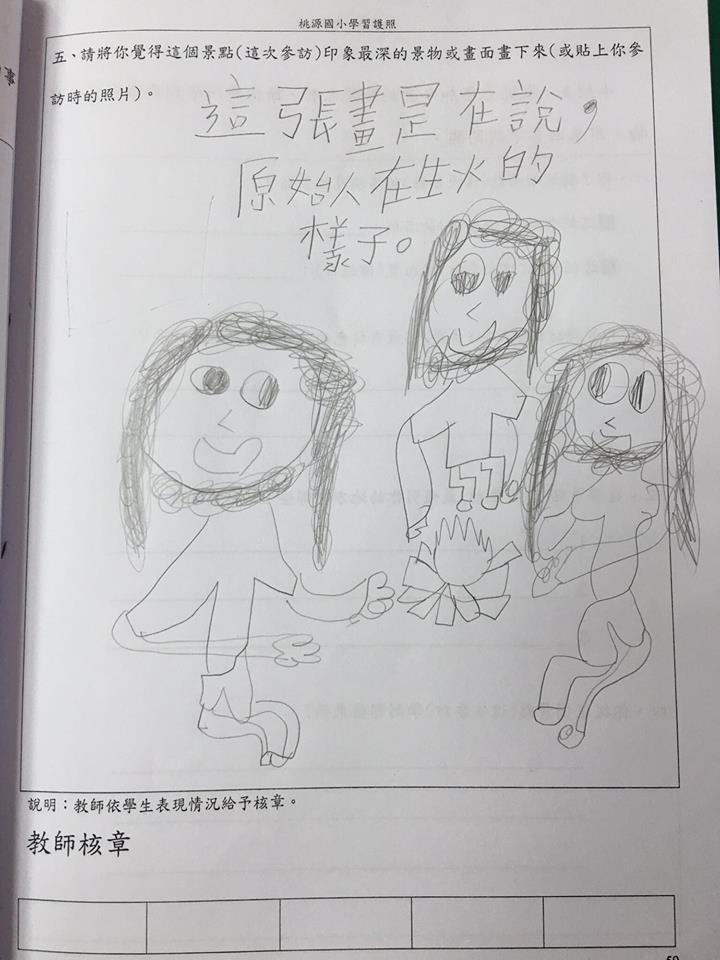 桃源國小學習護照
五、請將你覺得這個景點(這次參訪)印象最深的景物或畫面畫下來(或貼上你參
訪時的照片)。
這張畫是在說，
原始人在生火的
樣子。
說明：教師依學生表現情況給予核章。
教師核章
59